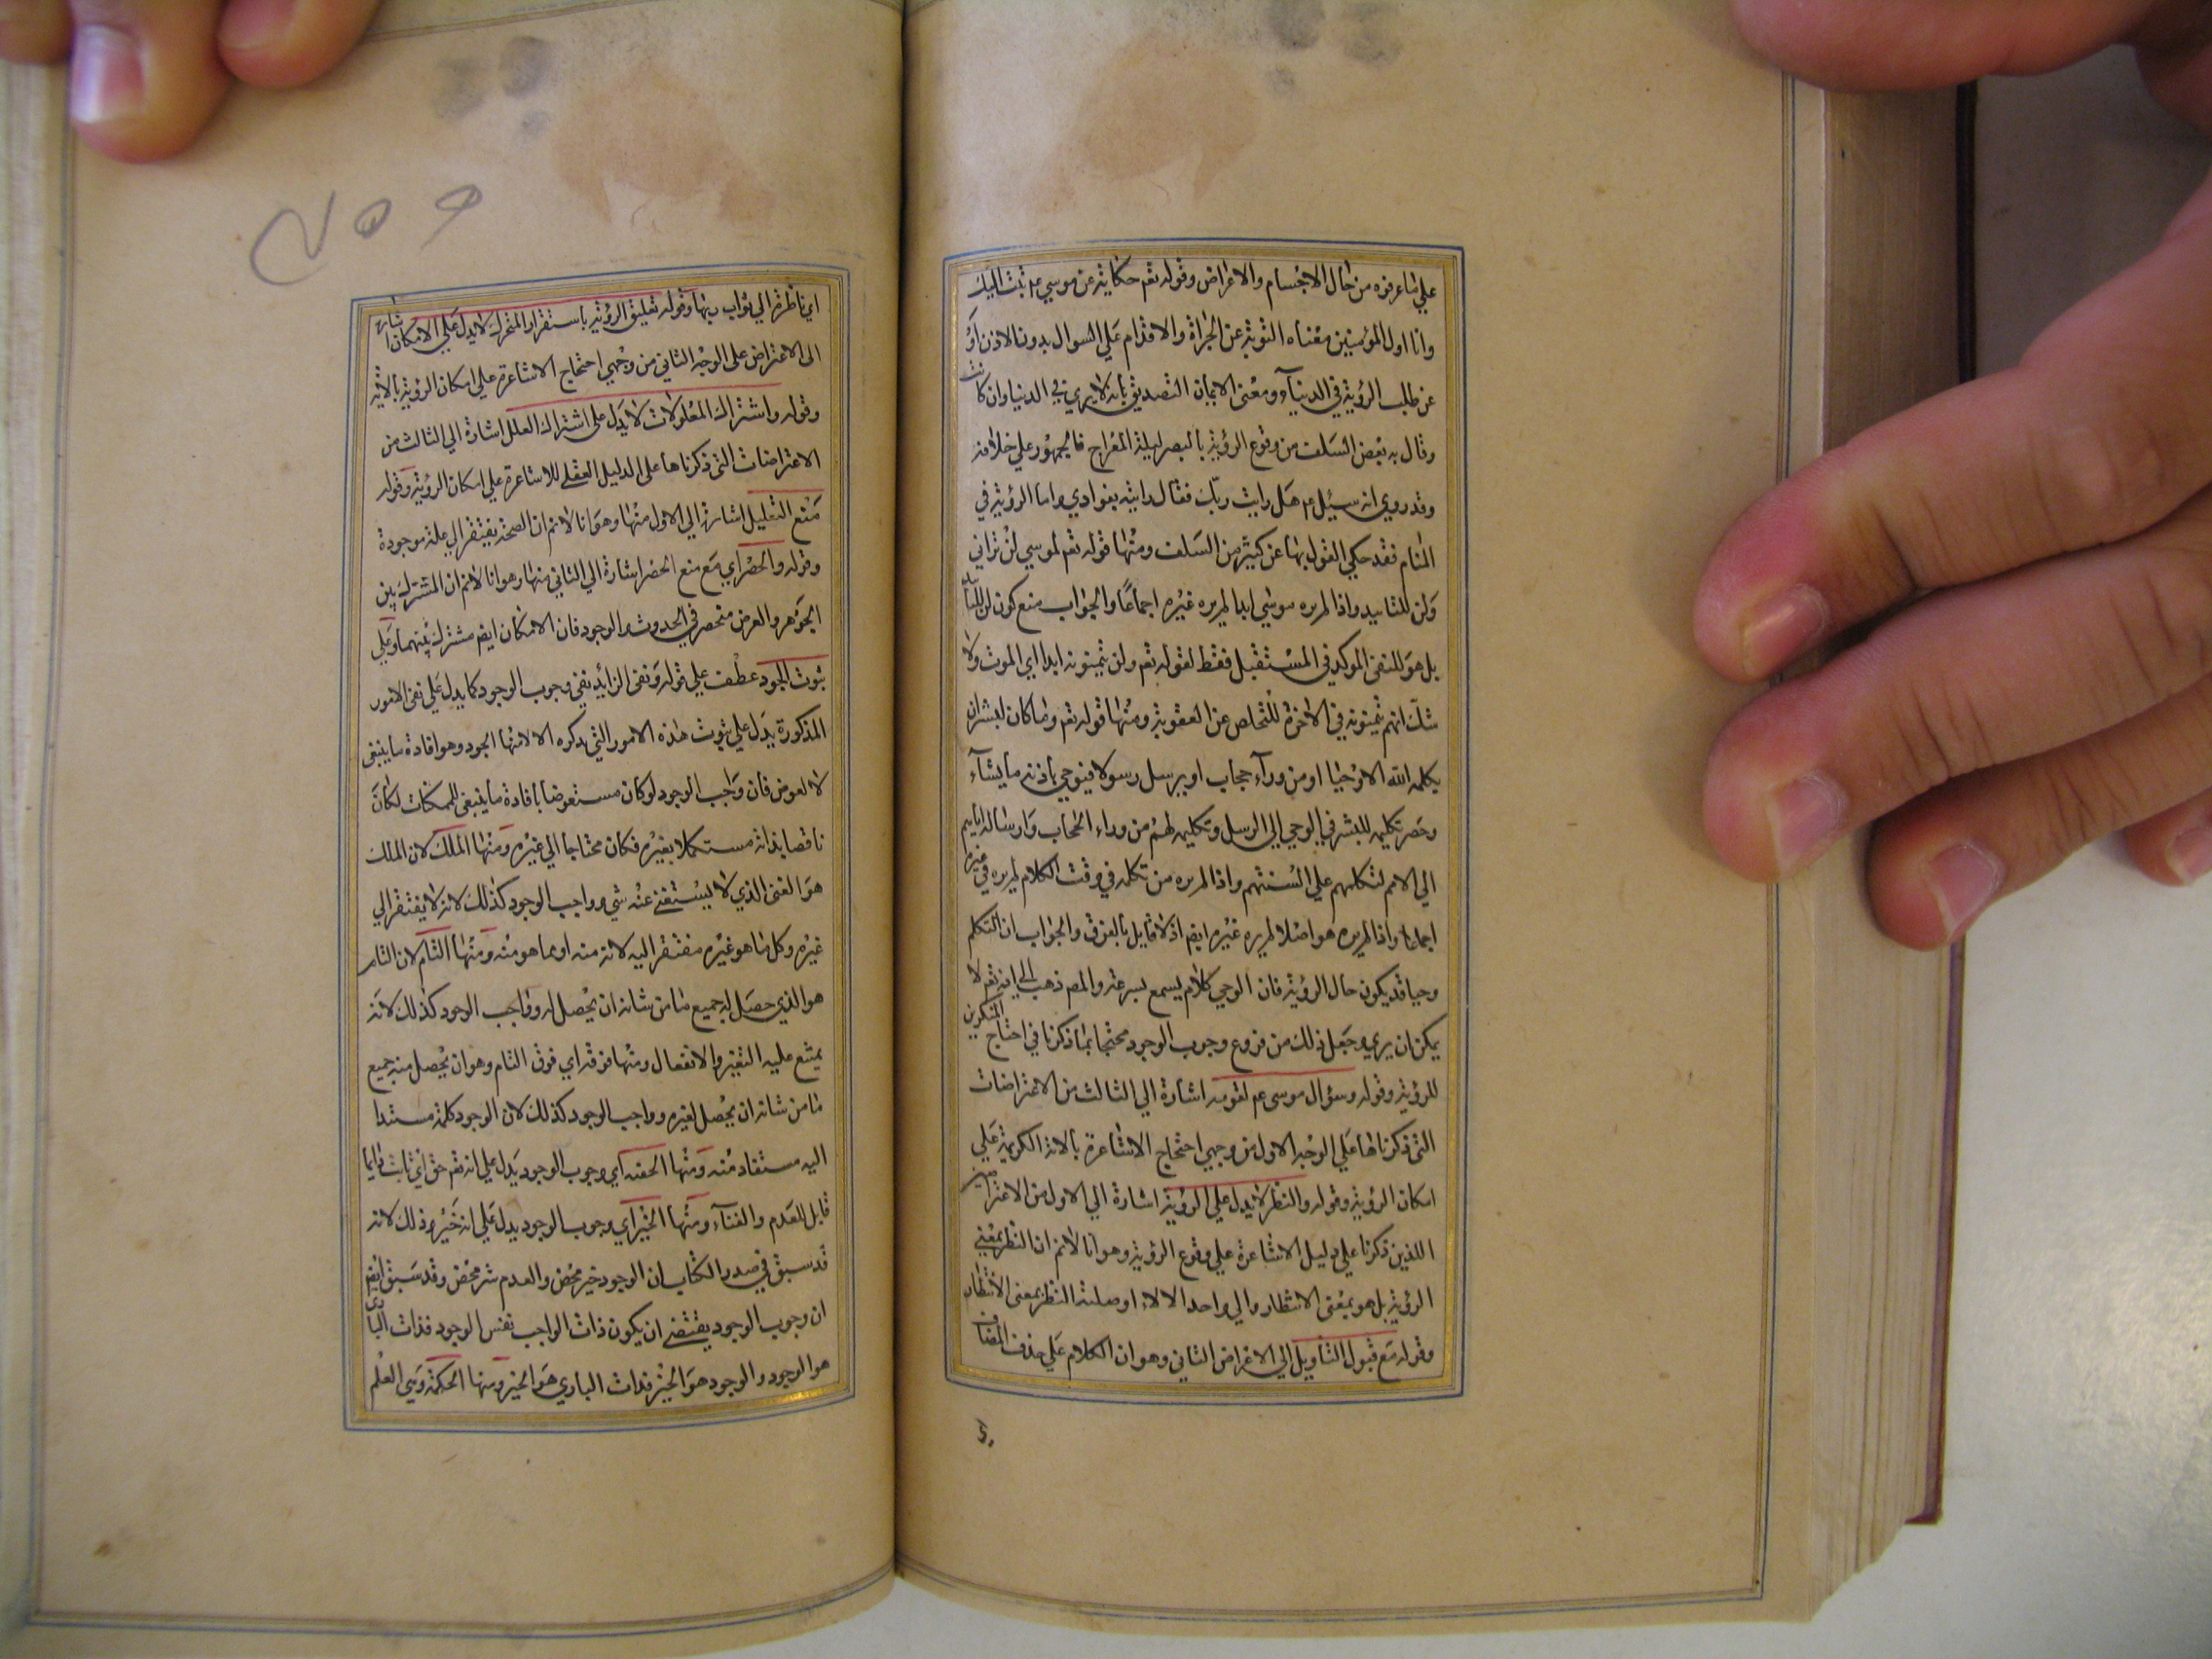 علي ما عرفوه من حال الاجسام والاعراض وقوله تعم حكاية عن موسي عم تبت اليك
وانا اول المؤمنين معناه التوبة عن الجراة والاقدام علي السوال بدون الاذن او
عن طلب الرؤية في الدنيا ومعني الايمان التصديق بانه لا يري في الدنيا وان كانت
وقال به بعض السلف من وقوع الرؤية بالبصر ليلة المعراج فالجمهور علي خلافه
وقد روي انه سيُل عم هل رايت ربك فقال رايته بفوادي واما الرؤية في
المنام فقد حكي القول بها عن كثير من السلف ومنها قوله تعم لموسي لن تراني
ولن للتابيد واذا لم يره موسي ابدا لم يره غيره اجماعًا والجواب منع كون لن للتابيد
بل هو للنفي الموكد في المستقبل فقط لقوله تعم ولن يتمنونه ابدا اي الموت ولا
شك انهم يتمنونه في الاخرة للتخلص عن العقوبة ومنها قوله تعم وما كان لبشر ان
يكلمه الله الا وحيا او من ورآء حجاب او يرسل رسولا فيوحي باذنه ما يشآء
وحصر تكليمه للبشر في الوحي الي الرسل وتكليمه لهم من وراء الحجاب وارساله اياهم
الي الامم لتكلمهم علي السنتهم واذا لم يره من تكلمه في وقت الكلام لم يره في غيره
اجماعا واذا لم يره هو اصلا لم يره غيره ايضم اذ لا قايل بالفرق والجواب ان التكلم
وحيا قد يكون حال الرؤية فان الوحي كلام يسمع بسرعة والمصم ذهب الي انه تعم لا
يمكن ان يري وجعل ذلك من فروع وجوب الوجود محتجا بما ذكرنا في احتاج المنكرين
للرؤية وقوله وسؤال موسي عم لقومه اشارة الي الثالث من الاعتراضات
التي ذكرناها علي الوجه الاول من وجهي احتجاج الاشاعرة بالاية الكريمة علي
امكان الرؤية وقوله والنظر لا يدل علي الرؤية اشارة الي الاول من الاعتراضين
اللذين ذكرنا علي دليل الاشاعرة علي وقوع الرؤية وهو انا لانم ان النظر بمعني
الرؤية بل هو بمعني الانتظار والي واحد الالاء او صلة النظر بمعني الانتظار
وقوله مع قبول التاويل الي الاعراض الثاني وهو ان الكلام علي حذف المضاف
اي ناظرة الي ثواب ربها وقوله تعليق الرؤية باستقرار المتحرك لا يدل علي الامكان اشارة
الي الاعتراض علي الوجه الثاني من وجهي احتجاج الاشاعرة علي امكان الرؤية بالاية
وقوله واشتراك المعلولات لا يدل علي اشتراك العلل اشارة الي الثالث من
الاعتراضات التي ذكرناها علي الدليل العقلي للاشاعرة علي امكان الرؤية وقوله
منع التعليل اشارة الي الاول منها وهو انا لانم ان الصحة يفتقر الي علة موجودة
وقوله والحصر اي مع منع الحصر اشارة الي الثاني منها وهو انا لانم ان المشترك بين
الجوهر والعرض منحصر في الحدوث والوجود فان الامكان ايضم مشترك بينهما وعلي
ثبوت الجود عطف علي قوله ونفي الزايد يعني وجوب الوجود كما يدل علي نفي الامور
المذكورة يدل علي ثبوت هذه الامور التي يذكره الا لامنها الجود وهو افادة ما ينبغي
لا لعوض فان واجب الوجود لو كان مستعوضا بافادة ما ينبغي للممكنات لكان
ناقصا بذاته مستكملا بغيره فكان محتاجا الي غيره ومنها الملك لان الملك
هو الغني الذي لا يستغني عنه شي وواجب الوجود كذلك لانه لا يفتقر الي
غيره وكل ما هو غيره مفتقر اليه لانه منه او مما هو منه ومنها التام لان التام
هو الذي حصل له جميع ما من شانه ان يحصل له وواجب الوجود كذلك لانه
يمتنع عليه التغير والانفعال ومنها فوقه اي فوق التام وهو ان يحصل منه جميع
ما من شانه ان يحصل لغيره وواجب الوجود كذلك لان الوجود كلمة مستندا
اليه مستفاد منه ومنها الحقية اي وجوب الوجود يدل علي انه تعم حق اي ثابت دايما
قابل للعدم والفنآء ومنها الخير اي وجوب الوجود يدل علي انه خير وذلك لانه
قد سبق في صدر الكتاب ان الوجود خير محض والعدم شر محض وقد سبق ايضم
ان وجوب الوجود يقتضي ان يكون ذات الواجب نفس الوجود فذات الباري
هو الوجود والوجود هو الخير فذات الباري هو الخير ومنها الحكمة وهي العلم